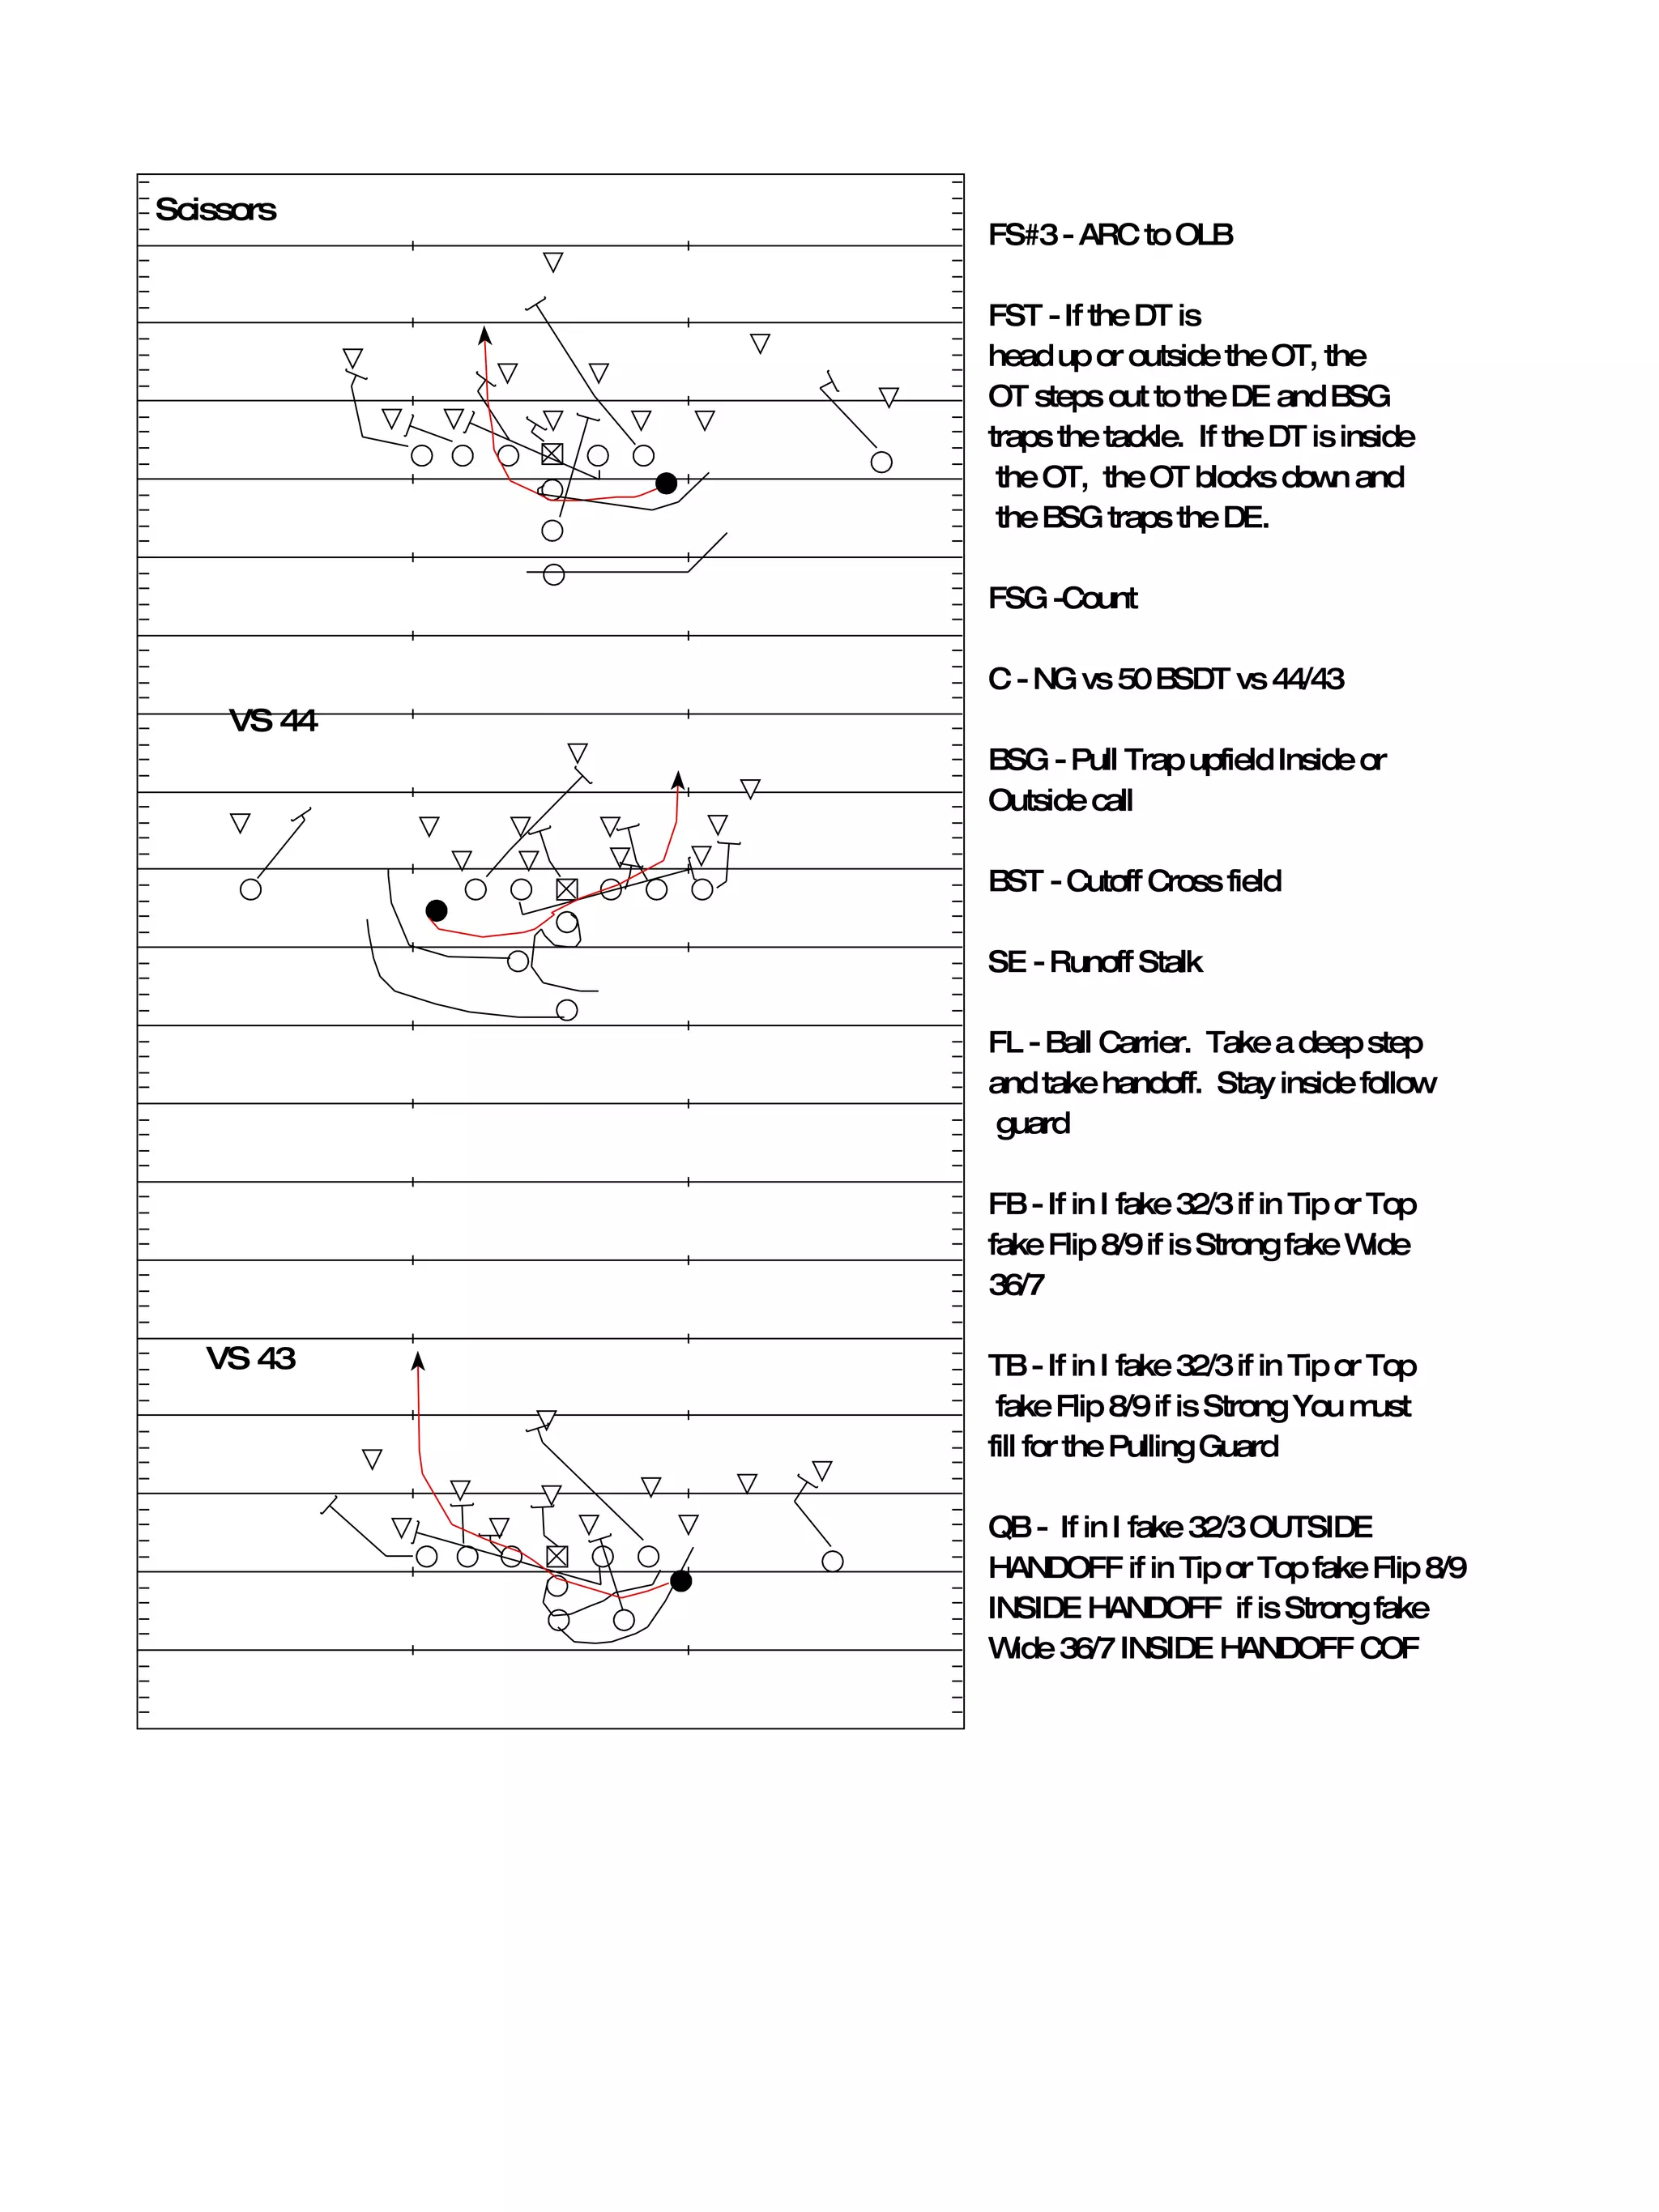 Scissors
VS 44
VS 43
FS#3 - ARC to OLB
FST - If the DT is
head up or outside the OT, the
OT steps out to the DE and BSG
traps the tackle. If the DT is inside
the OT, the OT blocks down and
the BSG traps the DE.
FSG -Count
C - NG vs 50 BSDT vs 44/43
BSG - Pull Trap upfield Inside or
Outside call
BST - Cutoff Cross field
SE - Runoff Stalk
FL - Ball Carrier. Take a deep step
and take handoff. Stay inside follow
guard
FB - If in I fake 32/3 if in Tip or Top
fake Flip 8/9 if is Strong fake Wide
36/7
TB - If in I fake 32/3 if in Tip or Top
fake Flip 8/9 if is Strong You must
fill for the Pulling Guard
QB - If in I fake 32/3 OUTSIDE
HANDOFF if in Tip or Top fake Flip 8/9
INSIDE HANDOFF if is Strong fake
Wide 36/7 INSIDE HANDOFF COF